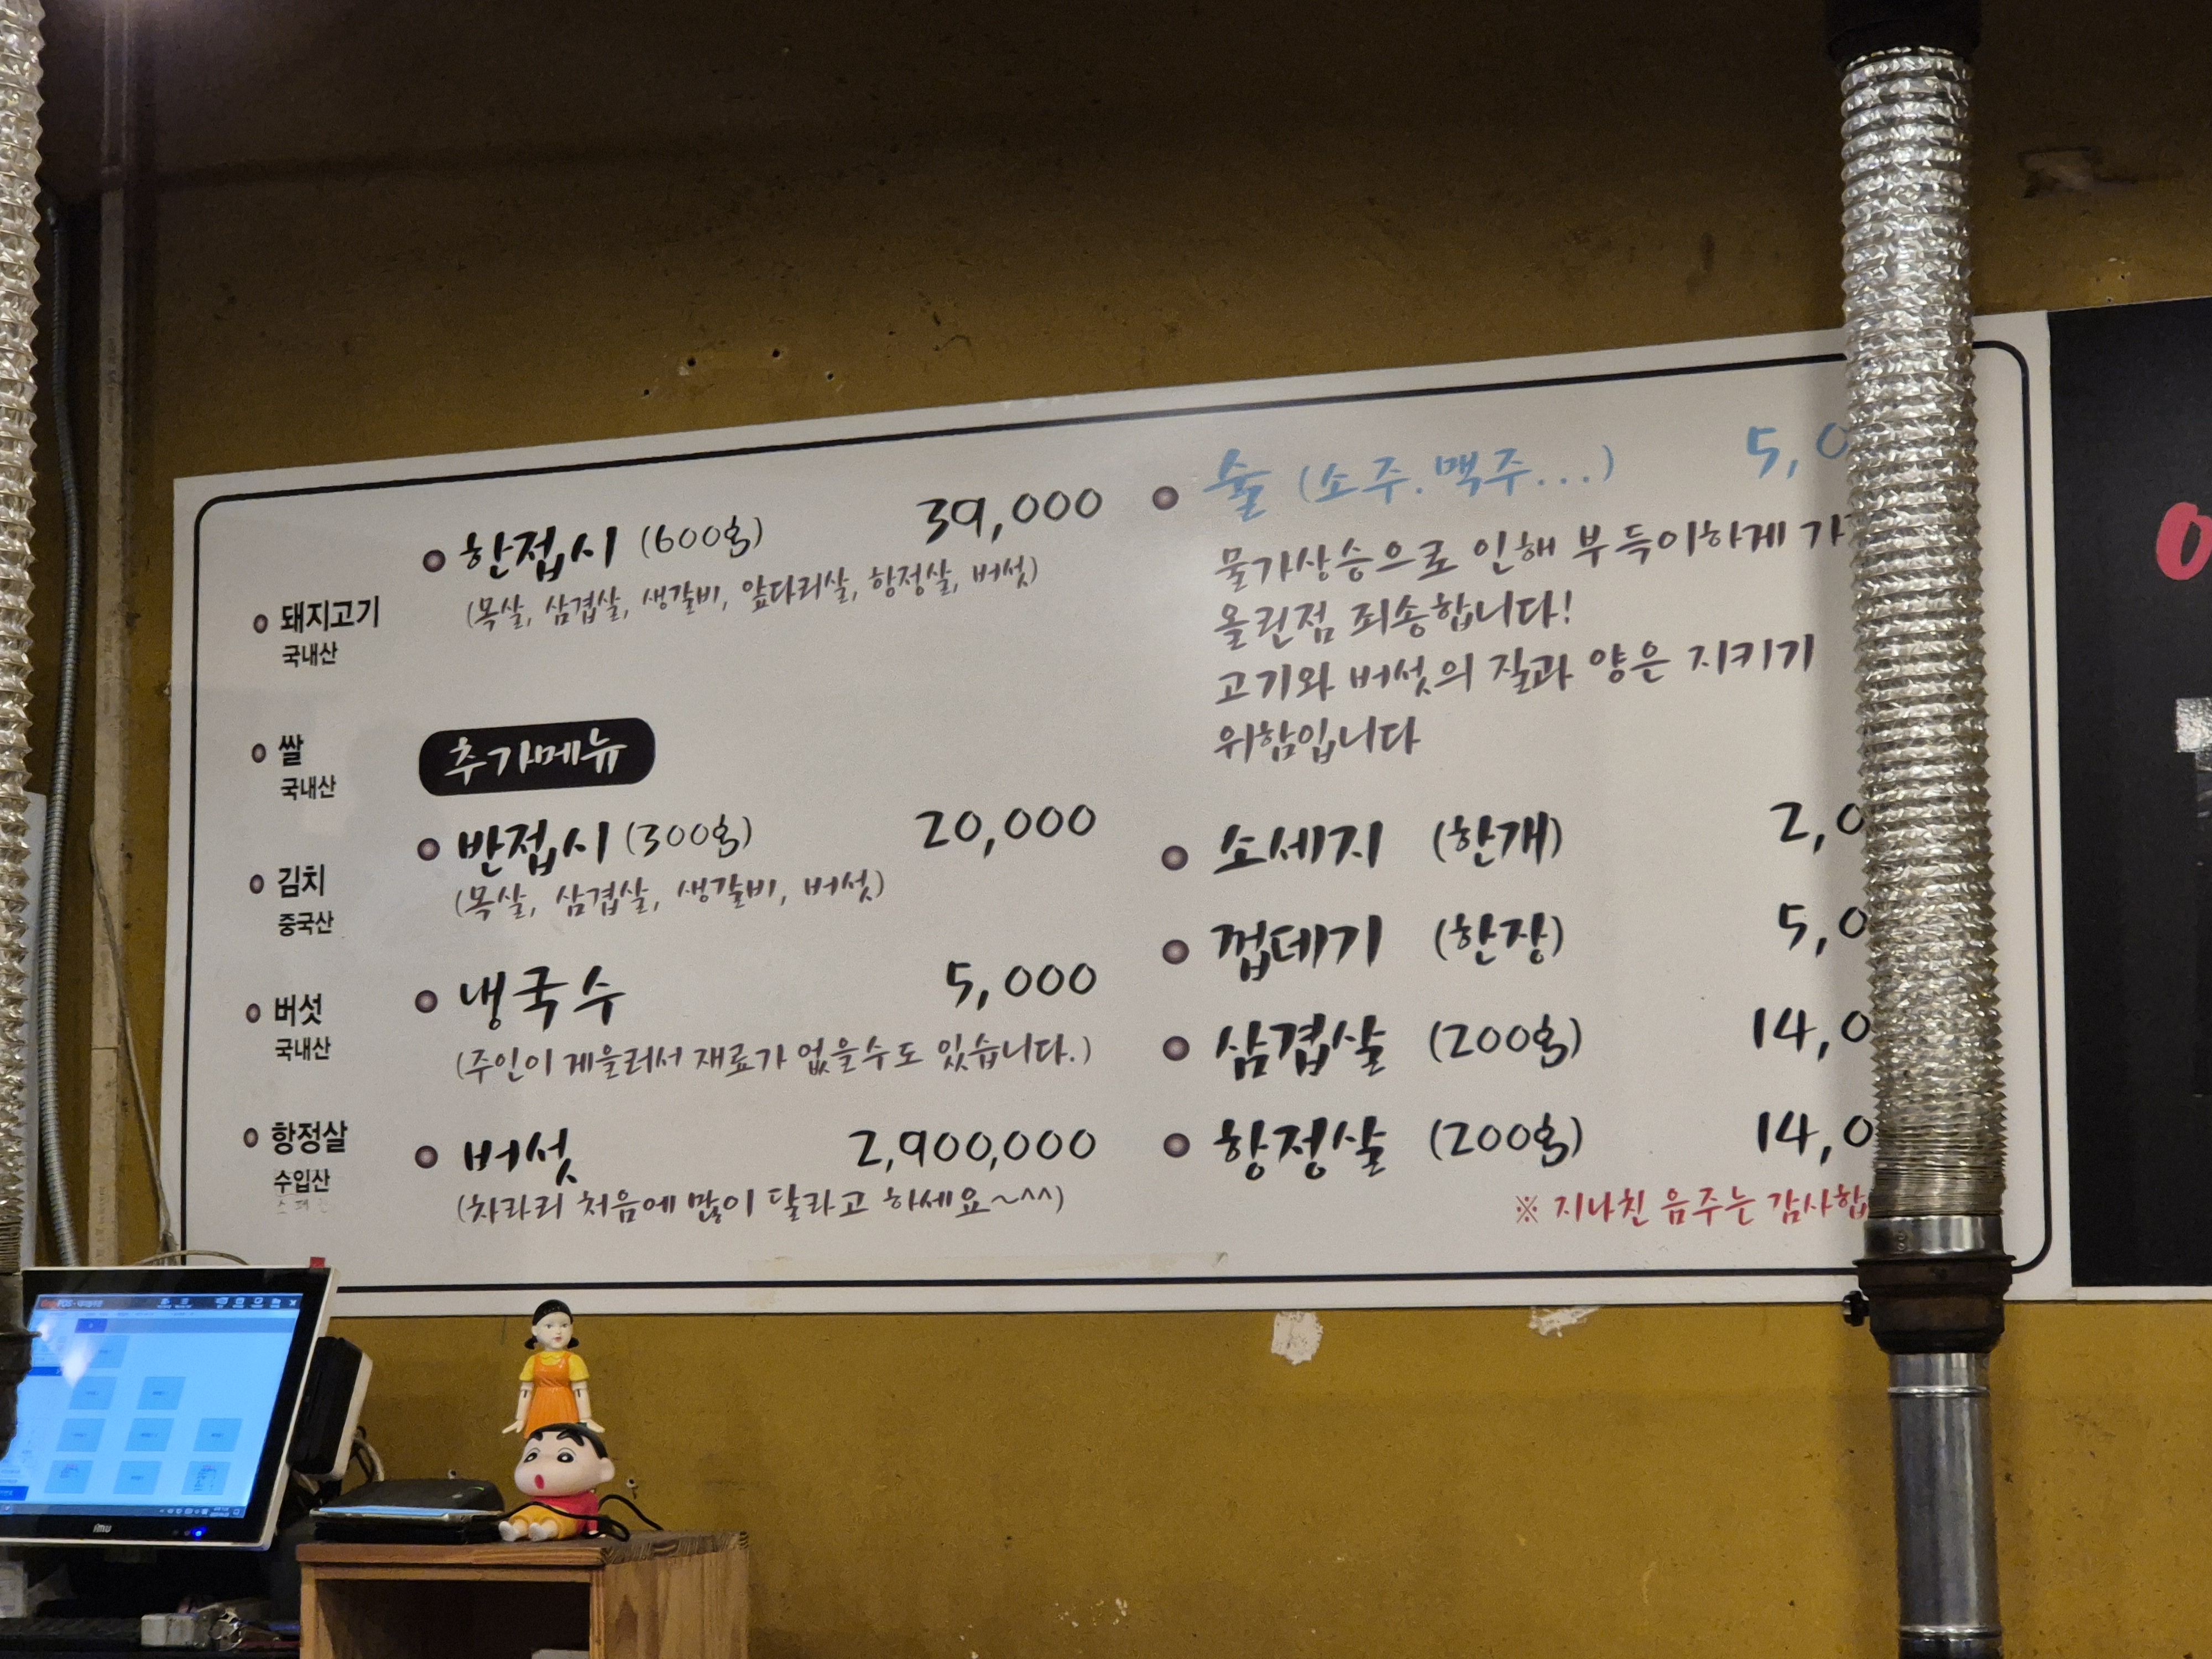 돼지고기
국내산
쌀
국내산
김치
중국산
버섯
국내산
항정살
수입산
한접시 (600g) 39,000
(목살, 삼겹살, 생갈비, 앞다리살, 항정살, 버섯)
추가메뉴
반접시 (300g) 20,000
(목살, 삼겹살, 생갈비, 버섯)
냉국수 5,000
(주인이 게을러서 재료가 없을수도 있습니다.)
버섯 2,900,000
(차라리 처음에 많이 달라고 하세요~^^)
술 (소주.맥주...) 5,0
물가상승으로 인해 부득이하게 가
올린점 죄송합니다!
고기와 버섯의 질과 양은 지키기
위함입니다
소세지 (한개) 2,0
껍데기 (한장) 5,0
삼겹살 (200g) 14,0
항정살 (200g) 14,0
※ 지나친 음주는 감사합
imu